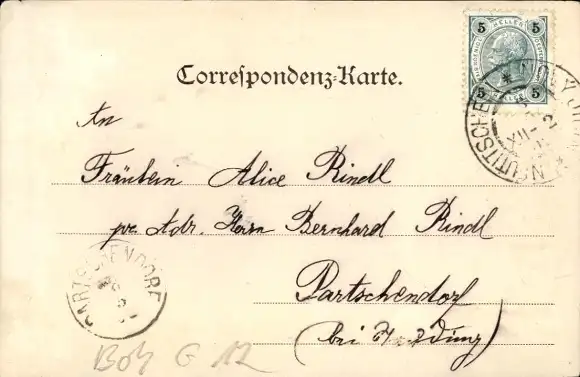 5 5
5 5
Correspondenz-Karte.
An
Fräulein Alice Rindl
per Adr. Herrn Bernhard Rindl
Partschendorf
(bei
PARTSCHENDORF
Bob G 12